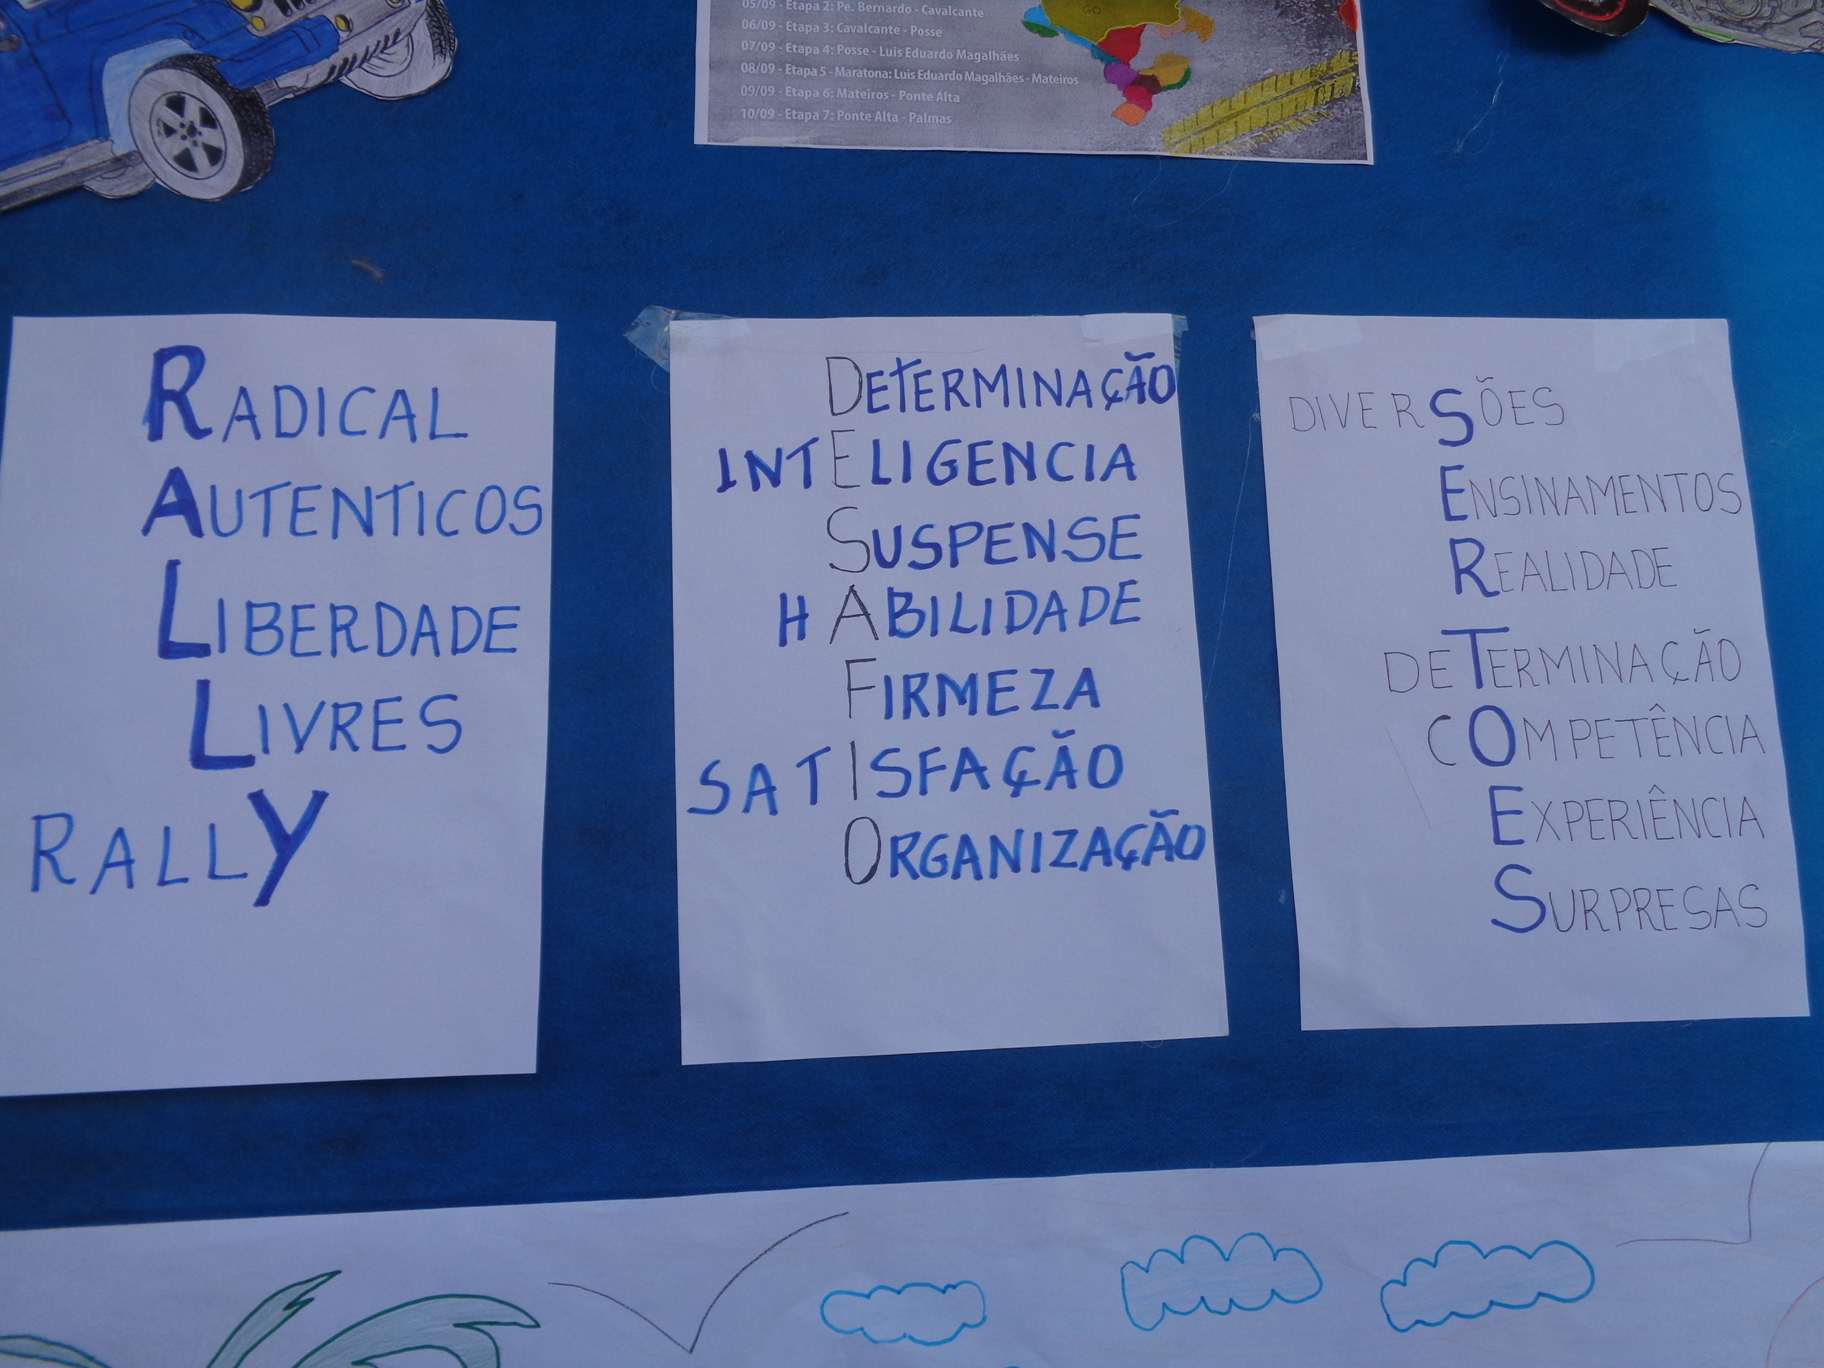 05/09 - Etapa 2: Pe. Bernardo - Cavalcante
06/09 - Etapa 3: Cavalcante - Posse
07/09 - Etapa 4: Posse - Luis Eduardo Magalhães
08/09 - Etapa 5 - Maratona: Luis Eduardo Magalhães - Mateiros
09/09 - Etapa 6: Mateiros - Ponte Alta
10/09 - Etapa 7: Ponte Alta - Palmas
GO
RADICAL
AUTENTICOS
LIBERDADE
LIVRES
RALLY
DETERMINAÇÃO
INTELIGENCIA
SUSPENSE
HABILIDADE
FIRMEZA
SATISFAÇÃO
ORGANIZAÇÃO
DIVERSÕES
ENSINAMENTOS
REALIDADE
DETERMINAÇÃO
COMPETÊNCIA
EXPERIÊNCIA
SURPRESAS